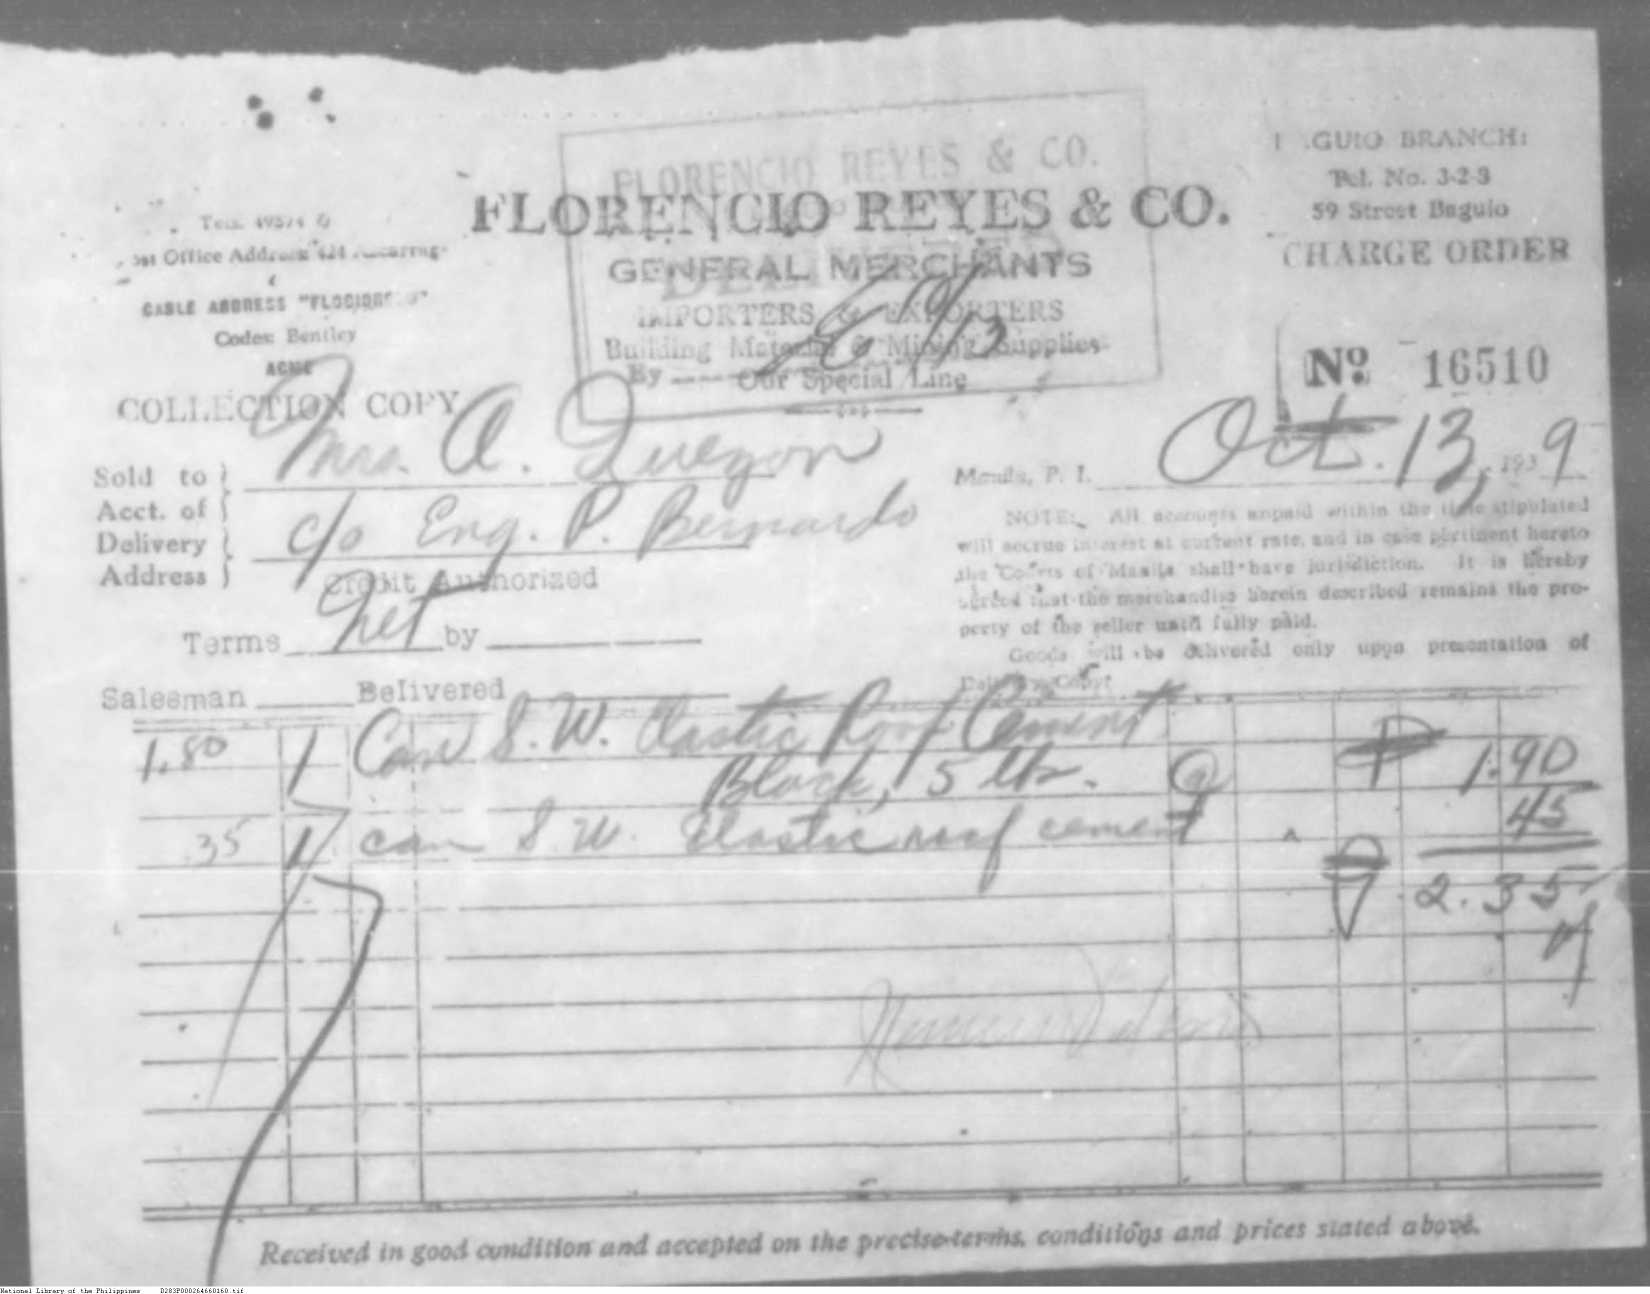 FLORENCIO REYES & CO.
FLORENCIO REYES & CO.
GENERAL MERCHANTS
IMPORTERS & EXPORTERS
Building Material & Mining Supplies
By Our Special Line
10/13
Office Address
CABLE ADDRESS
Codes: Bentley
ACME
COLLECTION COPY
BRANCH:
Tel. No. 3-2-3
59 Street Baguio
CHARGE ORDER
Nº 16510
Sold to Mrs. A. Quezon
Acct. of
Delivery c/o Eng. P. Bernardo
Address
Manila, P. I. Oct. 13, 1939
NOTE: All accounts unpaid within the time stipulated
will accrue interest at current rate, and in case pertinent hereto
the Courts of Manila shall have jurisdiction. It is hereby
agreed that the merchandise herein described remains the pro-
perty of the seller until fully paid.
Goods will be delivered only upon presentation of
Credit Authorized
Terms Net by
Salesman Delivered
1.80 1 Can S.W. Elastic Roof Cement
Black, 5 lb. @ P 1.90
.35 1 can S.W. Elastic roof cement 45
P 2.35
Received in good condition and accepted on the precise terms, conditions and prices stated above.
National Library of the Philippines D283P000264660160.tif